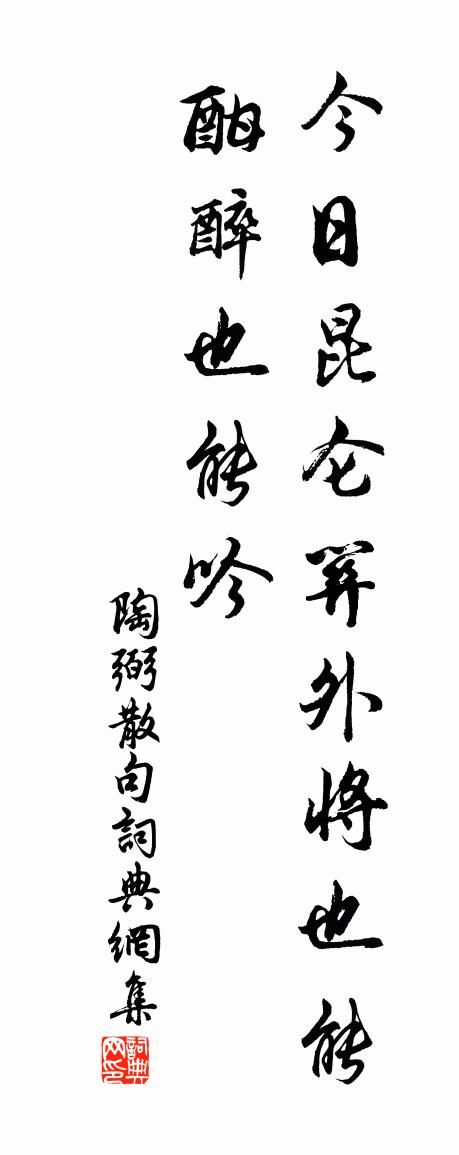 今日昆仑關外將也能
酣醉也能吟
陶弼散句詞典網集
詞典网印